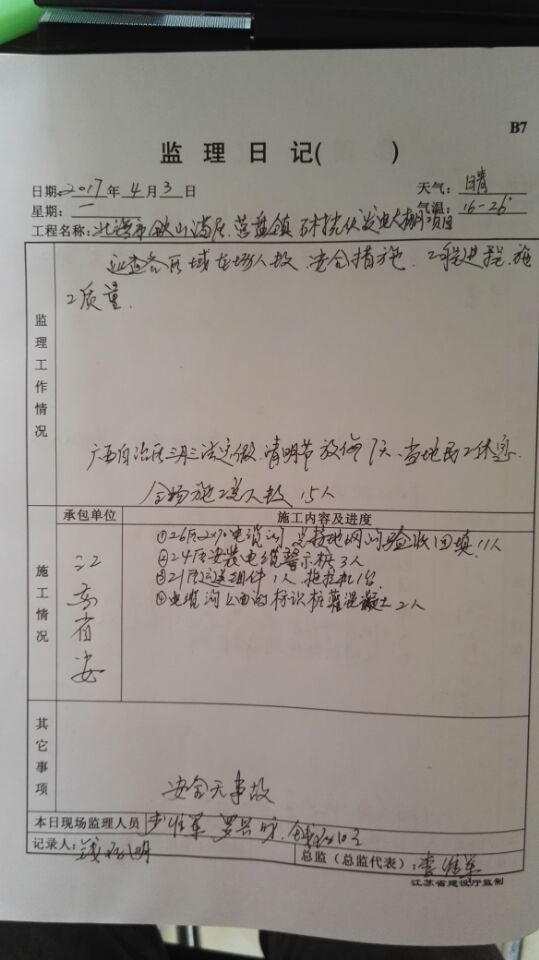 B7
监 理 日 记( )
日期: 2017 年 4 月 3 日 天气: 晴
星期: 一 气温: 16-26°
工程名称: 北海市铁山港区 营盘镇 光伏发电 项目
监理工作情况
巡查各区域在场人数、安全措施、工程进程、施
工质量.
广西自治区三月三法定假、清明节放假 7天、当地民工休息.
全场施工总人数 15人
承包单位 施工内容及进度
施工情况
江苏省安
①26区 电缆沟 接地网沟验收回填 11人
②24区安装电缆警示桩 3人
③21区运组件 1人 拖拉机1台
④电缆沟上面的标识桩灌混凝土 2人
其它事项
安全无事故
本日现场监理人员
记录人: 总监（总监代表）:
江苏省建设厅监制